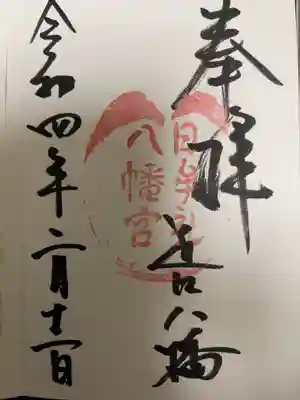 奉拝
近江八幡
日牟礼
八幡宮
令和四年二月十一日